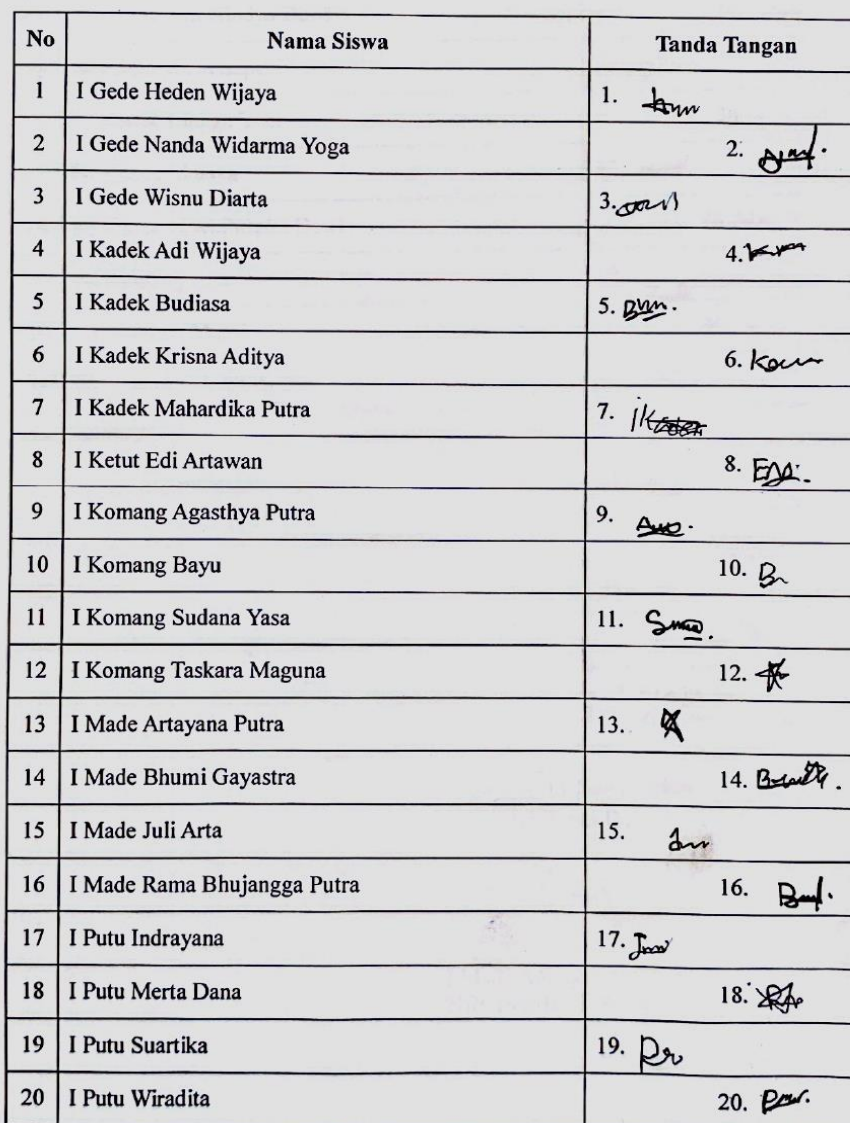 No Nama Siswa Tanda Tangan
1 I Gede Heden Wijaya 1.
2 I Gede Nanda Widarma Yoga 2.
3 I Gede Wisnu Diarta 3.
4 I Kadek Adi Wijaya 4.
5 I Kadek Budiasa 5.
6 I Kadek Krisna Aditya 6.
7 I Kadek Mahardika Putra 7.
8 I Ketut Edi Artawan 8.
9 I Komang Agasthya Putra 9.
10 I Komang Bayu 10.
11 I Komang Sudana Yasa 11.
12 I Komang Taskara Maguna 12.
13 I Made Artayana Putra 13.
14 I Made Bhumi Gayastra 14.
15 I Made Juli Arta 15.
16 I Made Rama Bhujangga Putra 16.
17 I Putu Indrayana 17.
18 I Putu Merta Dana 18.
19 I Putu Suartika 19.
20 I Putu Wiradita 20.